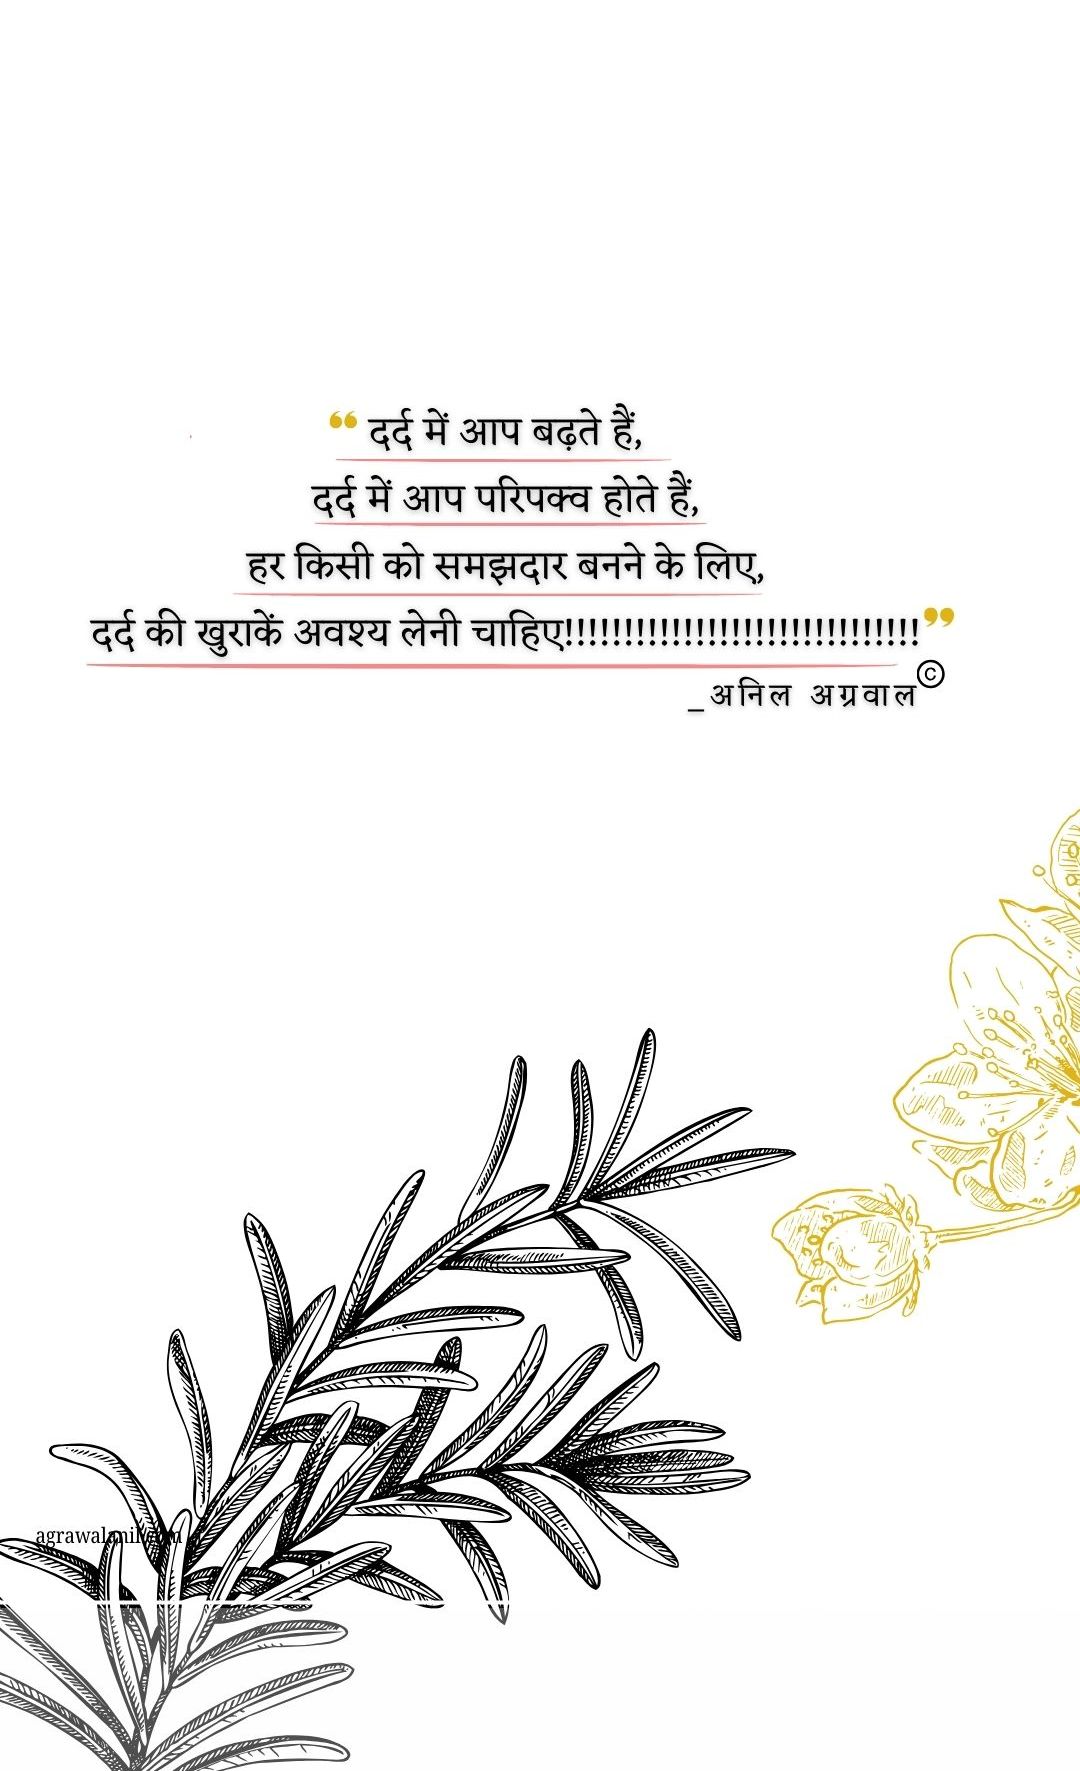 ❝ दर्द में आप बढ़ते हैं,
दर्द में आप परिपक्व होते हैं,
हर किसी को समझदार बनने के लिए,
दर्द की खुराकें अवश्य लेनी चाहिए!!!!!!!!!!!!!!!!!!!!!!!!!!!!!!❞
_अनिल अग्रवाल©
agrawalanil.com